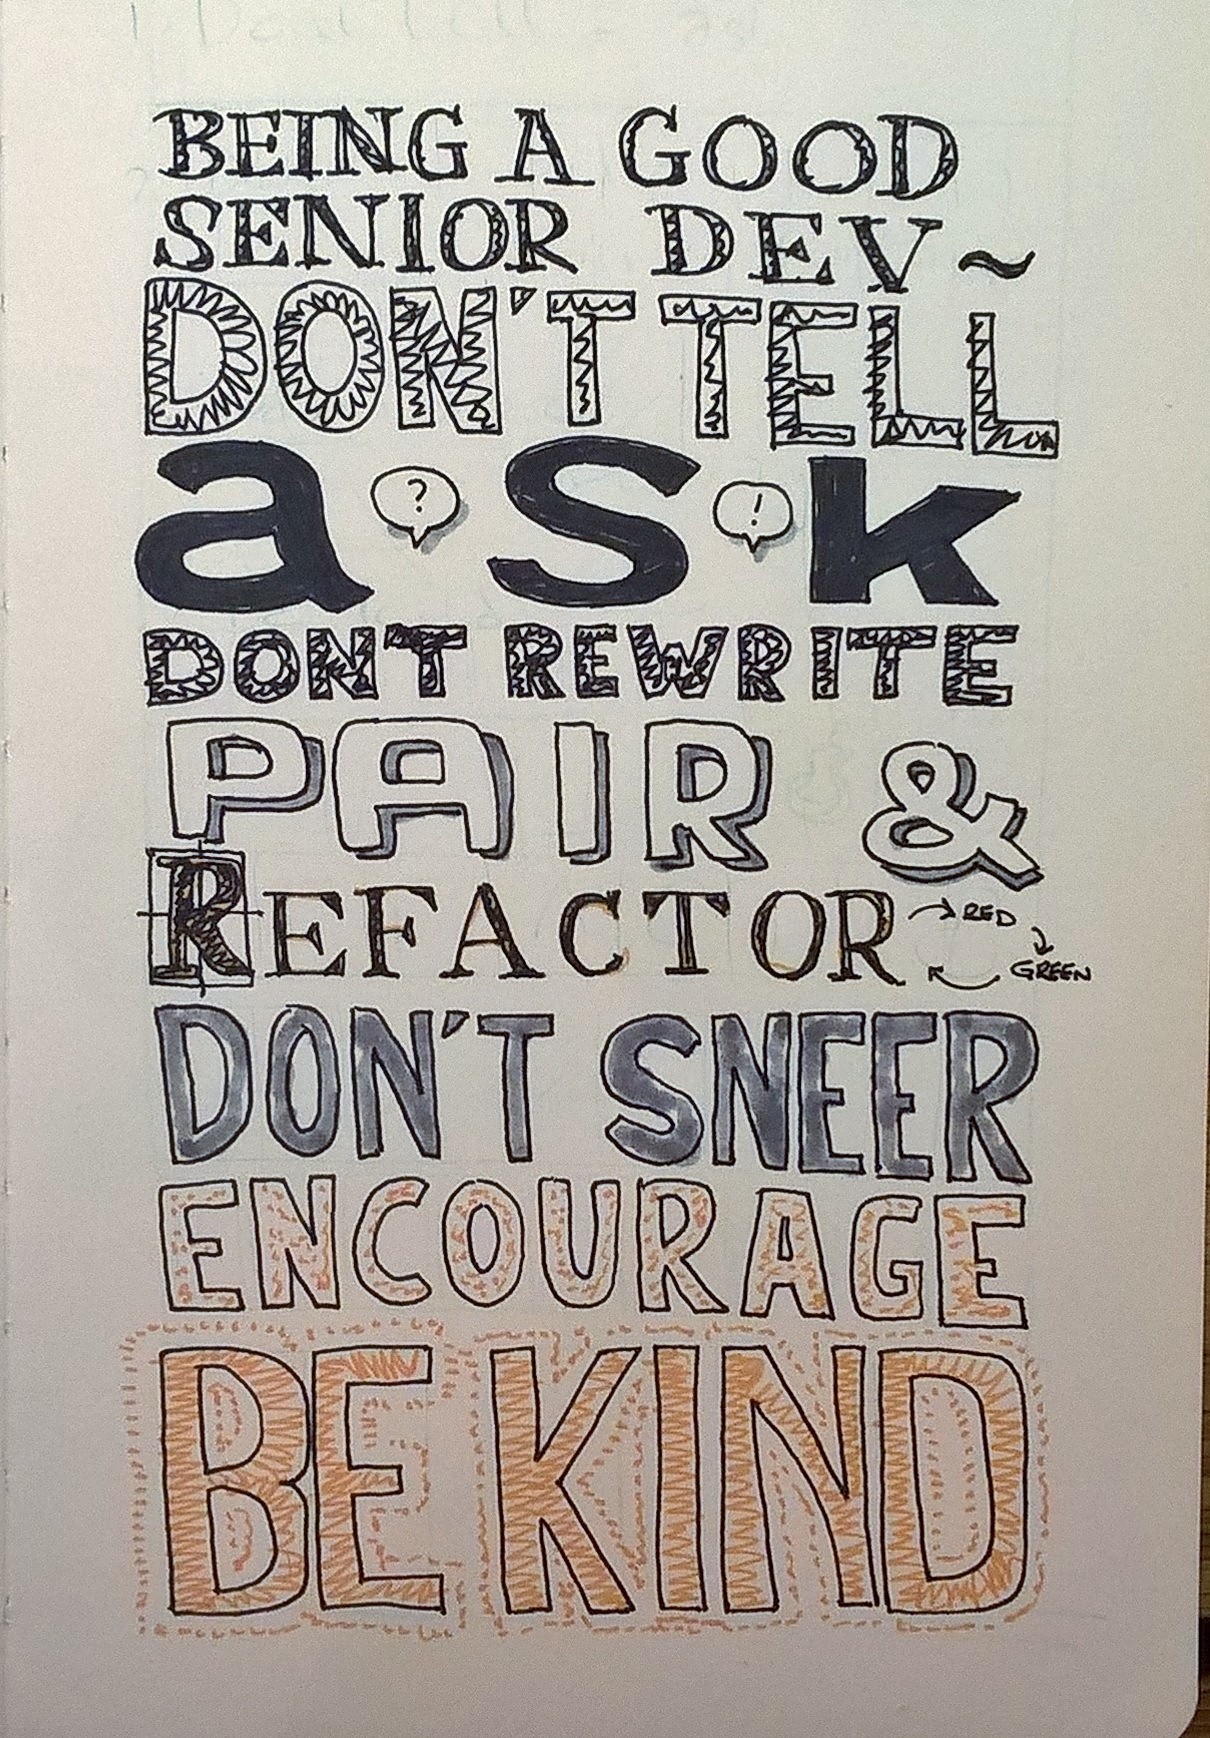 BEING A GOOD
SENIOR DEV~
DON'T TELL
a ? s ! k
DON'T REWRITE
PAIR &
REFACTOR RED
GREEN
DON'T SNEER
ENCOURAGE
BE KIND